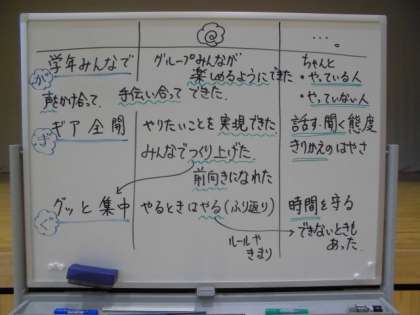 学年みんなで
グループみんなが
楽しめるようにできた
ちゃんと
・やっている人
・やっていない人
が
声をかけ合って、手伝い合ってできた。
ギア全開
ぎ
やりたいことを実現できた
みんなでつくり上げた
前向きになれた
話す・聞く態度
きりかえのはやさ
グッと集中
ぐ
やるときはやる(ふり返り)
ルールや
きまり
時間を守る
できないときも
あった